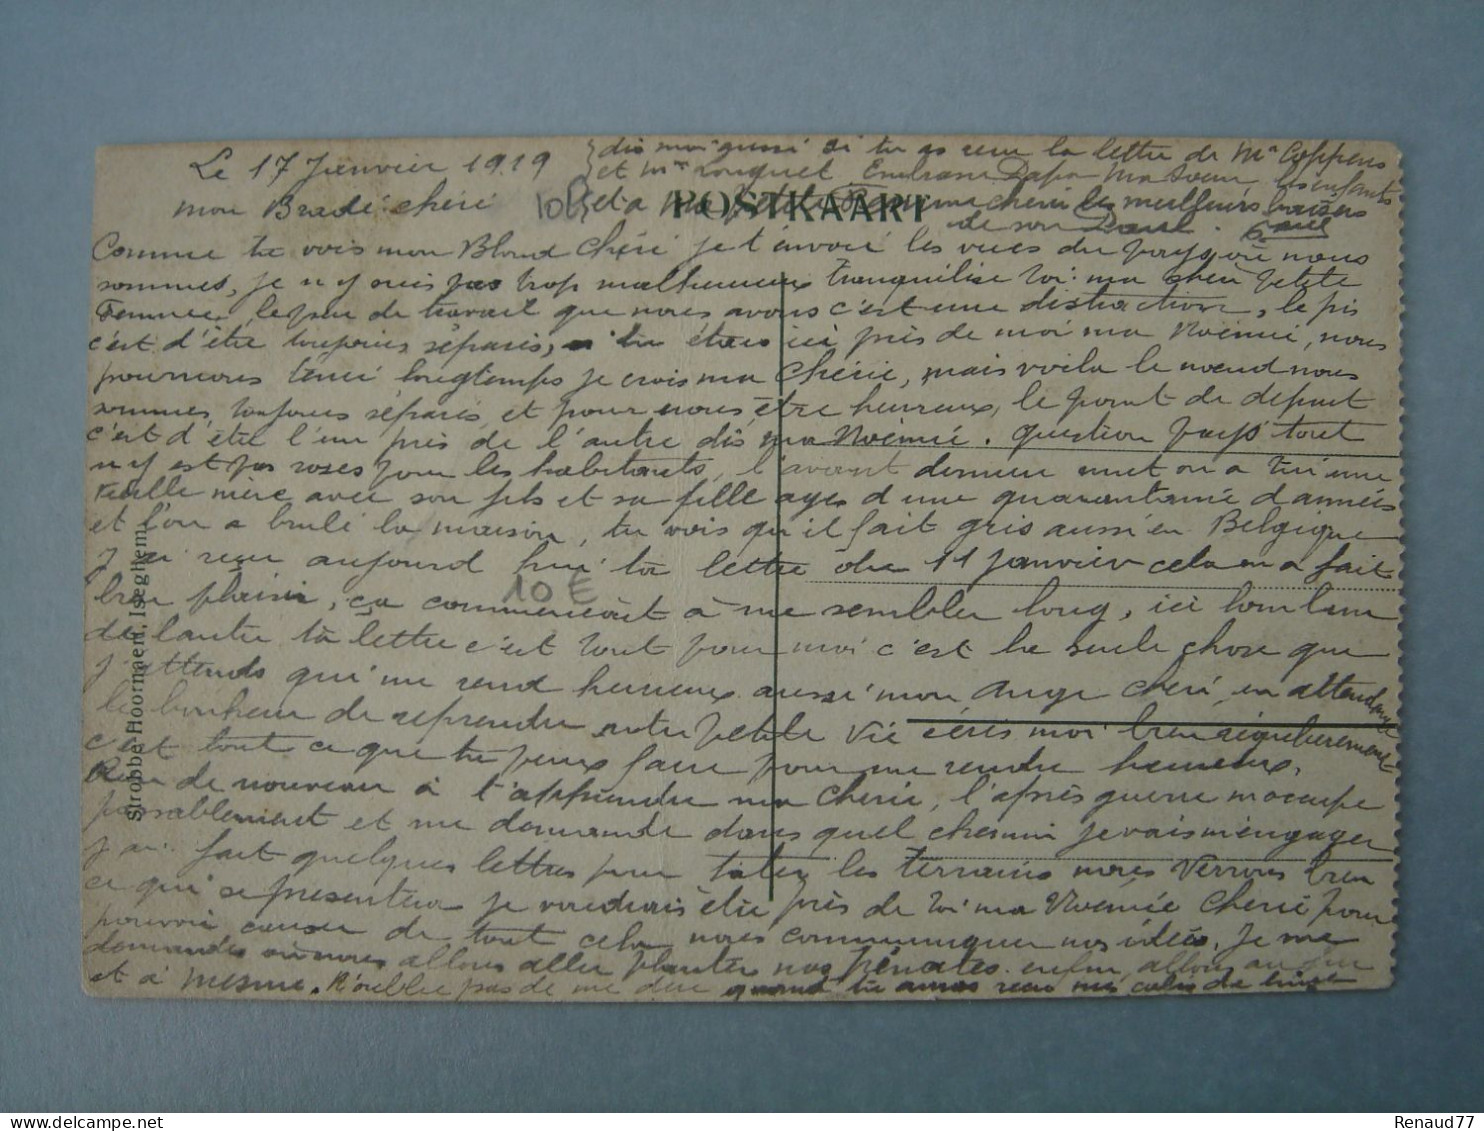 Le 17 Janvier 1919
mon chéri
POSTKAART
dis moi aussi si tu as reçu la lettre de Mr Coppens
et Mme Embrasse Papa Ma Soeur, les enfants
et a Ma Petite Femme chérie les meilleurs baisers
de son Paul. Paul
10E
Comme tu vois mon Blond Chéri je t'envoie les vues du pays où nous
sommes, je n'y suis pas trop malheureux tranquilise toi ma chèr petite
Femme, le peu de travail que nous avons c'est une distraction, le pis
c'est d'être toujours séparés, si tu étais ici près de moi ma Noémie, nous
pourrions tenir longtemps je crois ma Chérie, mais voila le noeud nous
sommes toujours séparés et pour nous être heureux, le point de depart
c'est d'être l'un près de l'autre dis ma Noémie. question pays tout
n'y est pas roses pour les habitants, l'avant dernière nuit on a tué une
vieille mère avec son fils et sa fille ages d'une quarantaine d'années
et l'on a brulé la maison, tu vois qu'il fait gris aussi en Belgique
j'ai reçu aujourd'hui ta lettre du 11 Janvier cela m'a fait
bien plaisir, ça commencait à me sembler long, ici loin l'un
de l'autre ta lettre c'est tout pour moi c'est la seule chose que
j'attends qui me rend heureux aussi mon ange chéri, en attendant
le bonheur de reprendre notre petite vie écris moi bien régulierement
c'est tout ce que tu peux faire pour me rendre heureux.
Rien de nouveau à t'apprendre ma Chérie, l'après guerre m'occupe
passablement et me demande dans quel chemin je vais m'engager
j'ai fait quelques lettres pour tater les terrains nous verrons bien
ce qui se presentera je voudrais être près de toi ma Noémie Chérie pour
pouvoir causer de tout cela nous communiquer nos idées. Je me
demande où nous allons aller planter nos pénates enfin, allons au
et à mesure. N'oublie pas de me dire quand tu auras recu mes colis de linge
Strobbe Hoornaert, Iseghem.
10 E
Renaud77